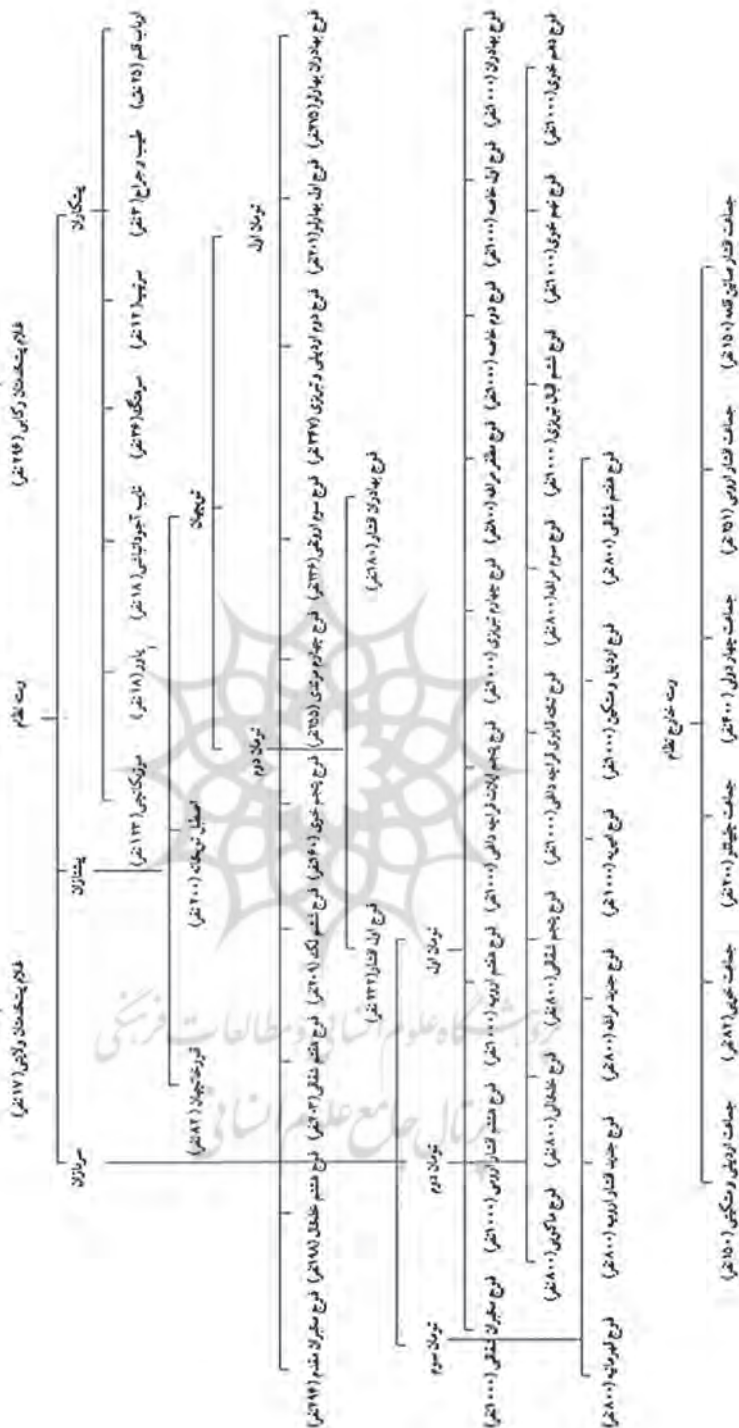 غلام پیشخدمتان رکابی (۲۹۶ نفر)
غلام پیشخدمتان ولایتی (۱۷ نفر)
رسته نظام
پیشکاران
پیشتازان
سربازان
ارباب قلم (۲۵ نفر)
طبیب و جراح (۳ نفر)
سرتیپ (۱۲ نفر)
سرهنگ (۳۶ نفر)
نایب آجودانباشی (۱۸ نفر)
یاور (۱۸ نفر)
موزیکانچی (۱۲۳ نفر)
توپچیان
اصطبل توپخانه (۲۰۰ نفر)
قورخانچیان (۸۲ نفر)
تومان اول
تومان دوم
فوج بهادران بهارلو (۲۷۵ نفر)
فوج اول بهارلو (۲۰۱ نفر)
فوج دوم اردبیلی و تبریزی (۲۴۷ نفر)
فوج سوم ارونقی (۲۳۶ نفر)
فوج چهارم مرندی (۲۵۵ نفر)
فوج پنجم خوی (۱۶۰ نفر)
فوج ششم لک (۲۰۹ نفر)
فوج هفتم شقاقی (۲۰۳ نفر)
فوج هشتم خلخال (۱۹۸ نفر)
فوج مخبران مقدم (۱۹۴ نفر)
فوج بهادران افشار (۱۸۰ نفر)
فوج اول افشار (۲۳۲ نفر)
تومان اول
تومان دوم
تومان سوم
فوج بهادران (۱۰۰۰ نفر)
فوج اول خاصه (۱۰۰۰ نفر)
فوج دوم خاصه (۱۰۰۰ نفر)
فوج مظفر مراغه (۸۰۰ نفر)
فوج چهارم تبریزی (۱۰۰۰ نفر)
فوج پنجم ایلات قراجه داغی (۱۰۰۰ نفر)
فوج هفتم ارومیه (۱۰۰۰ نفر)
فوج هشتم افشار ارومی (۱۰۰۰ نفر)
فوج مخبران شقاقی (۱۰۰۰ نفر)
فوج دهم خوی (۱۰۰۰ نفر)
فوج نهم خوی (۱۰۰۰ نفر)
فوج ششم اقبال تبریزی (۱۰۰۰ نفر)
فوج سوم مراغه (۸۰۰ نفر)
فوج تخته قاپوی قراجه داغی (۱۰۰۰ نفر)
فوج پنجم شقاقی (۸۰۰ نفر)
فوج خلخالی (۸۰۰ نفر)
فوج ماکویی (۸۰۰ نفر)
فوج هفتم شقاقی (۸۰۰ نفر)
فوج اردبیل و مشکین (۱۰۰۰ نفر)
فوج امیریه (۱۰۰۰ نفر)
فوج جدید مراغه (۸۰۰ نفر)
فوج جدید افشار ارومیه (۸۰۰ نفر)
فوج قهرمانیه (۸۰۰ نفر)
رسته خارج نظام
جماعت افشار صائین قلعه (۱۵۰ نفر)
جماعت افشار ارومی (۲۵۱ نفر)
جماعت چهار دولی (۴۰۰ نفر)
جماعت چلبیانلو (۲۰۰ نفر)
جماعت خویی (۸۲ نفر)
جماعت اردبیلی و مشکینی (۱۵۰ نفر)
پژوهشگاه علوم انسانی و مطالعات فرهنگی
پرتال جامع علوم انسانی